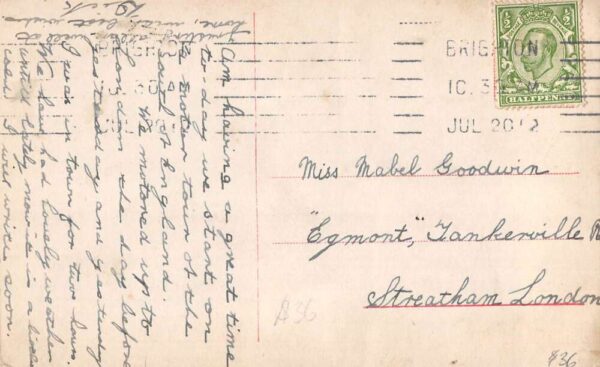 Am having a great time
to-day we start on
a motor tour of the
South of England.
We motored up to
London the day before
yesterday and yesterday
I was in town for two hours.
We have had lovely weather
until lately now it is a little
I will write soon.
well at
home, with best wishes
Dick
BRIGHTON
10.30
BRIGHTON
10.3
JUL 20 12
HALFPENNY
Miss Mabel Goodwin
"Egmont," Tankerville R
Streatham London
A36
836